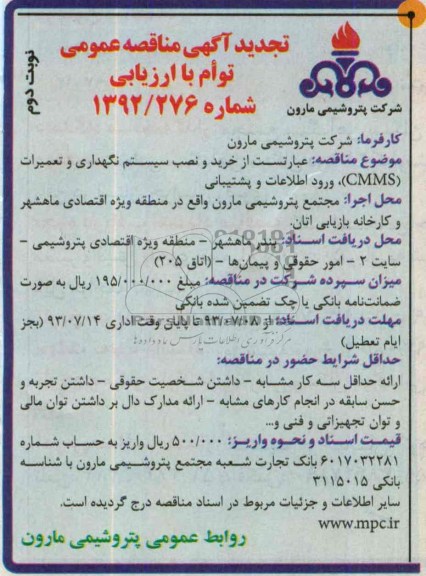 تجدید آگهی مناقصه عمومی
توأم با ارزیابی
شماره ۱۳۹۲/۲۷۶
نوبت دوم
شرکت پتروشیمی مارون
کارفرما: شرکت پتروشیمی مارون
موضوع مناقصه: عبارتست از خرید و نصب سیستم نگهداری و تعمیرات
(CMMS)، ورود اطلاعات و پشتیبانی
محل اجرا: مجتمع پتروشیمی مارون واقع در منطقه ویژه اقتصادی ماهشهر
و کارخانه بازیابی اتان.
محل دریافت اسناد: بندر ماهشهر - منطقه ویژه اقتصادی پتروشیمی -
سایت ۲ - امور حقوقی و پیمان‌ها - (اتاق ۲۰۵)
میزان سپرده شرکت در مناقصه: مبلغ ۱۹۵/۰۰۰/۰۰۰ ریال به صورت
ضمانت‌نامه بانکی یا چک تضمین شده بانکی
مهلت دریافت اسناد: از ۹۳/۰۷/۰۸ تا پایان وقت اداری ۹۳/۰۷/۱۴ (بجز
ایام تعطیل)
حداقل شرایط حضور در مناقصه:
ارائه حداقل سه کار مشابه - داشتن شخصیت حقوقی - داشتن تجربه و
حسن سابقه در انجام کارهای مشابه - ارائه مدارک دال بر داشتن توان مالی
و توان تجهیزاتی و فنی و...
قیمت اسناد و نحوه واریز: ۵۰۰/۰۰۰ ریال واریز به حساب شماره
۶۰۱۷۰۳۲۲۸۱ بانک تجارت شعبه مجتمع پتروشیمی مارون با شناسه
بانکی ۳۱۱۵۰۱۵
سایر اطلاعات و جزئیات مربوط در اسناد مناقصه درج گردیده است.
www.mpc.ir
روابط عمومی پتروشیمی مارون